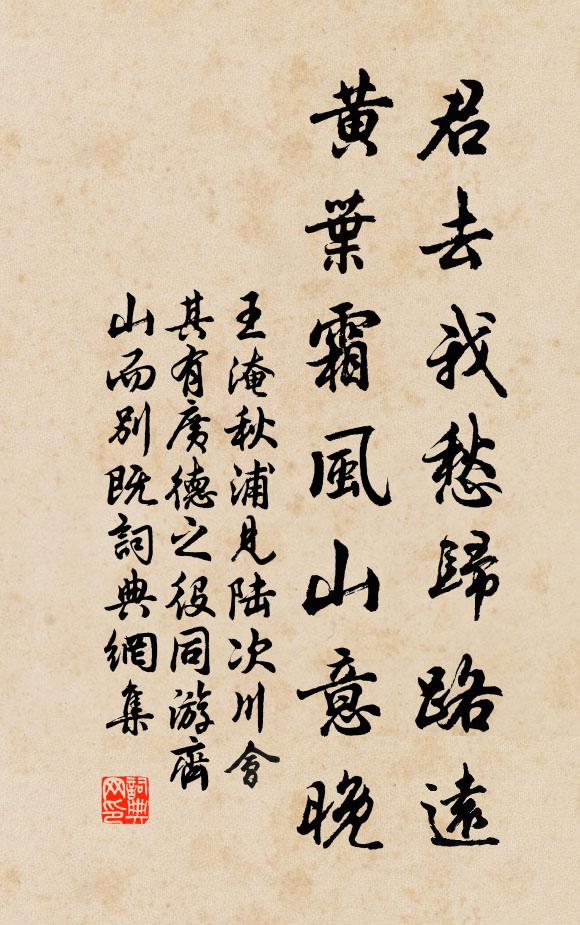 君去我愁歸路遠
黃葉霜風山意晚
王淹秋浦見陆次川會
其有廣德之役同游齊
山而别既詞典網集
詞典
网印